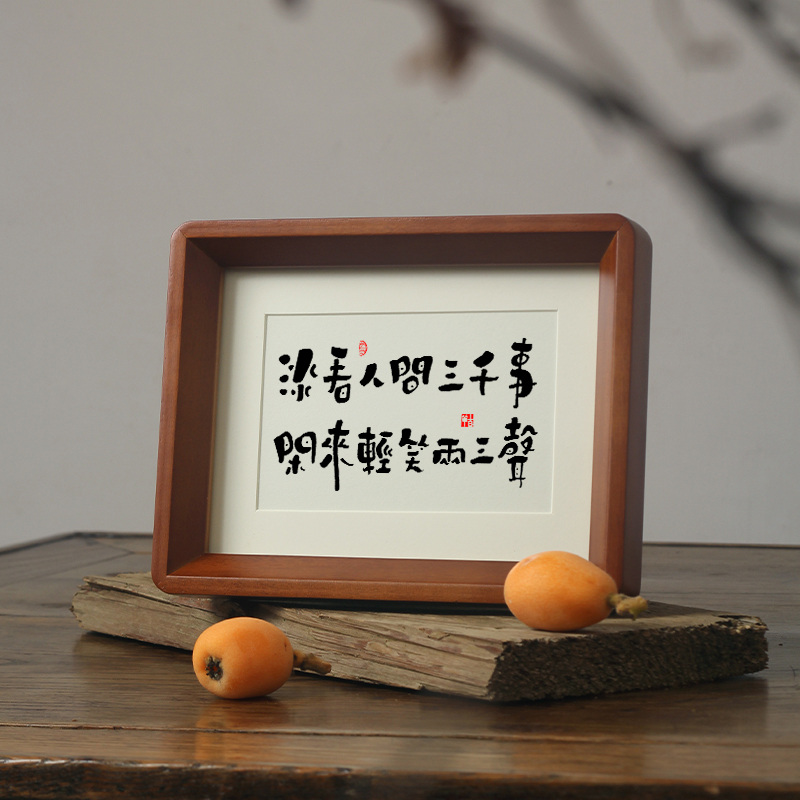 涼看人間三千事
閑來輕笑兩三聲